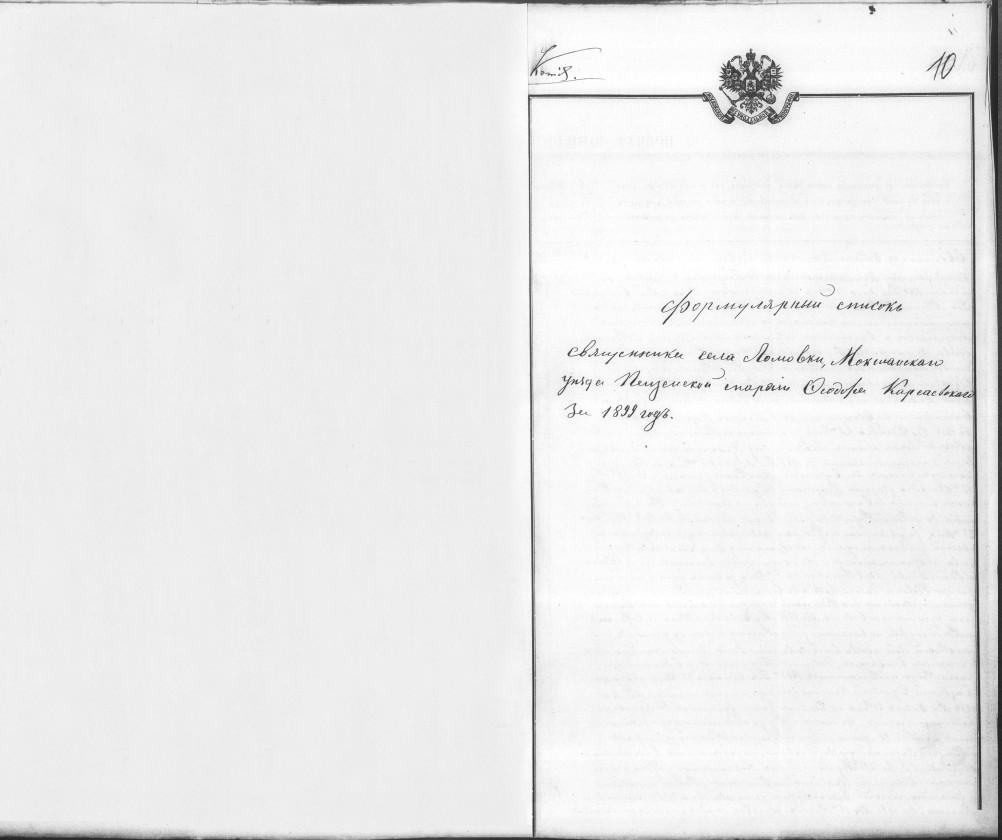 Копія.
10
Формулярный списокъ
священника села Ломовки, Мокшанскаго
уѣзда Пензенской епархіи Ѳеодора Карсаевскаго
За 1899 годъ.